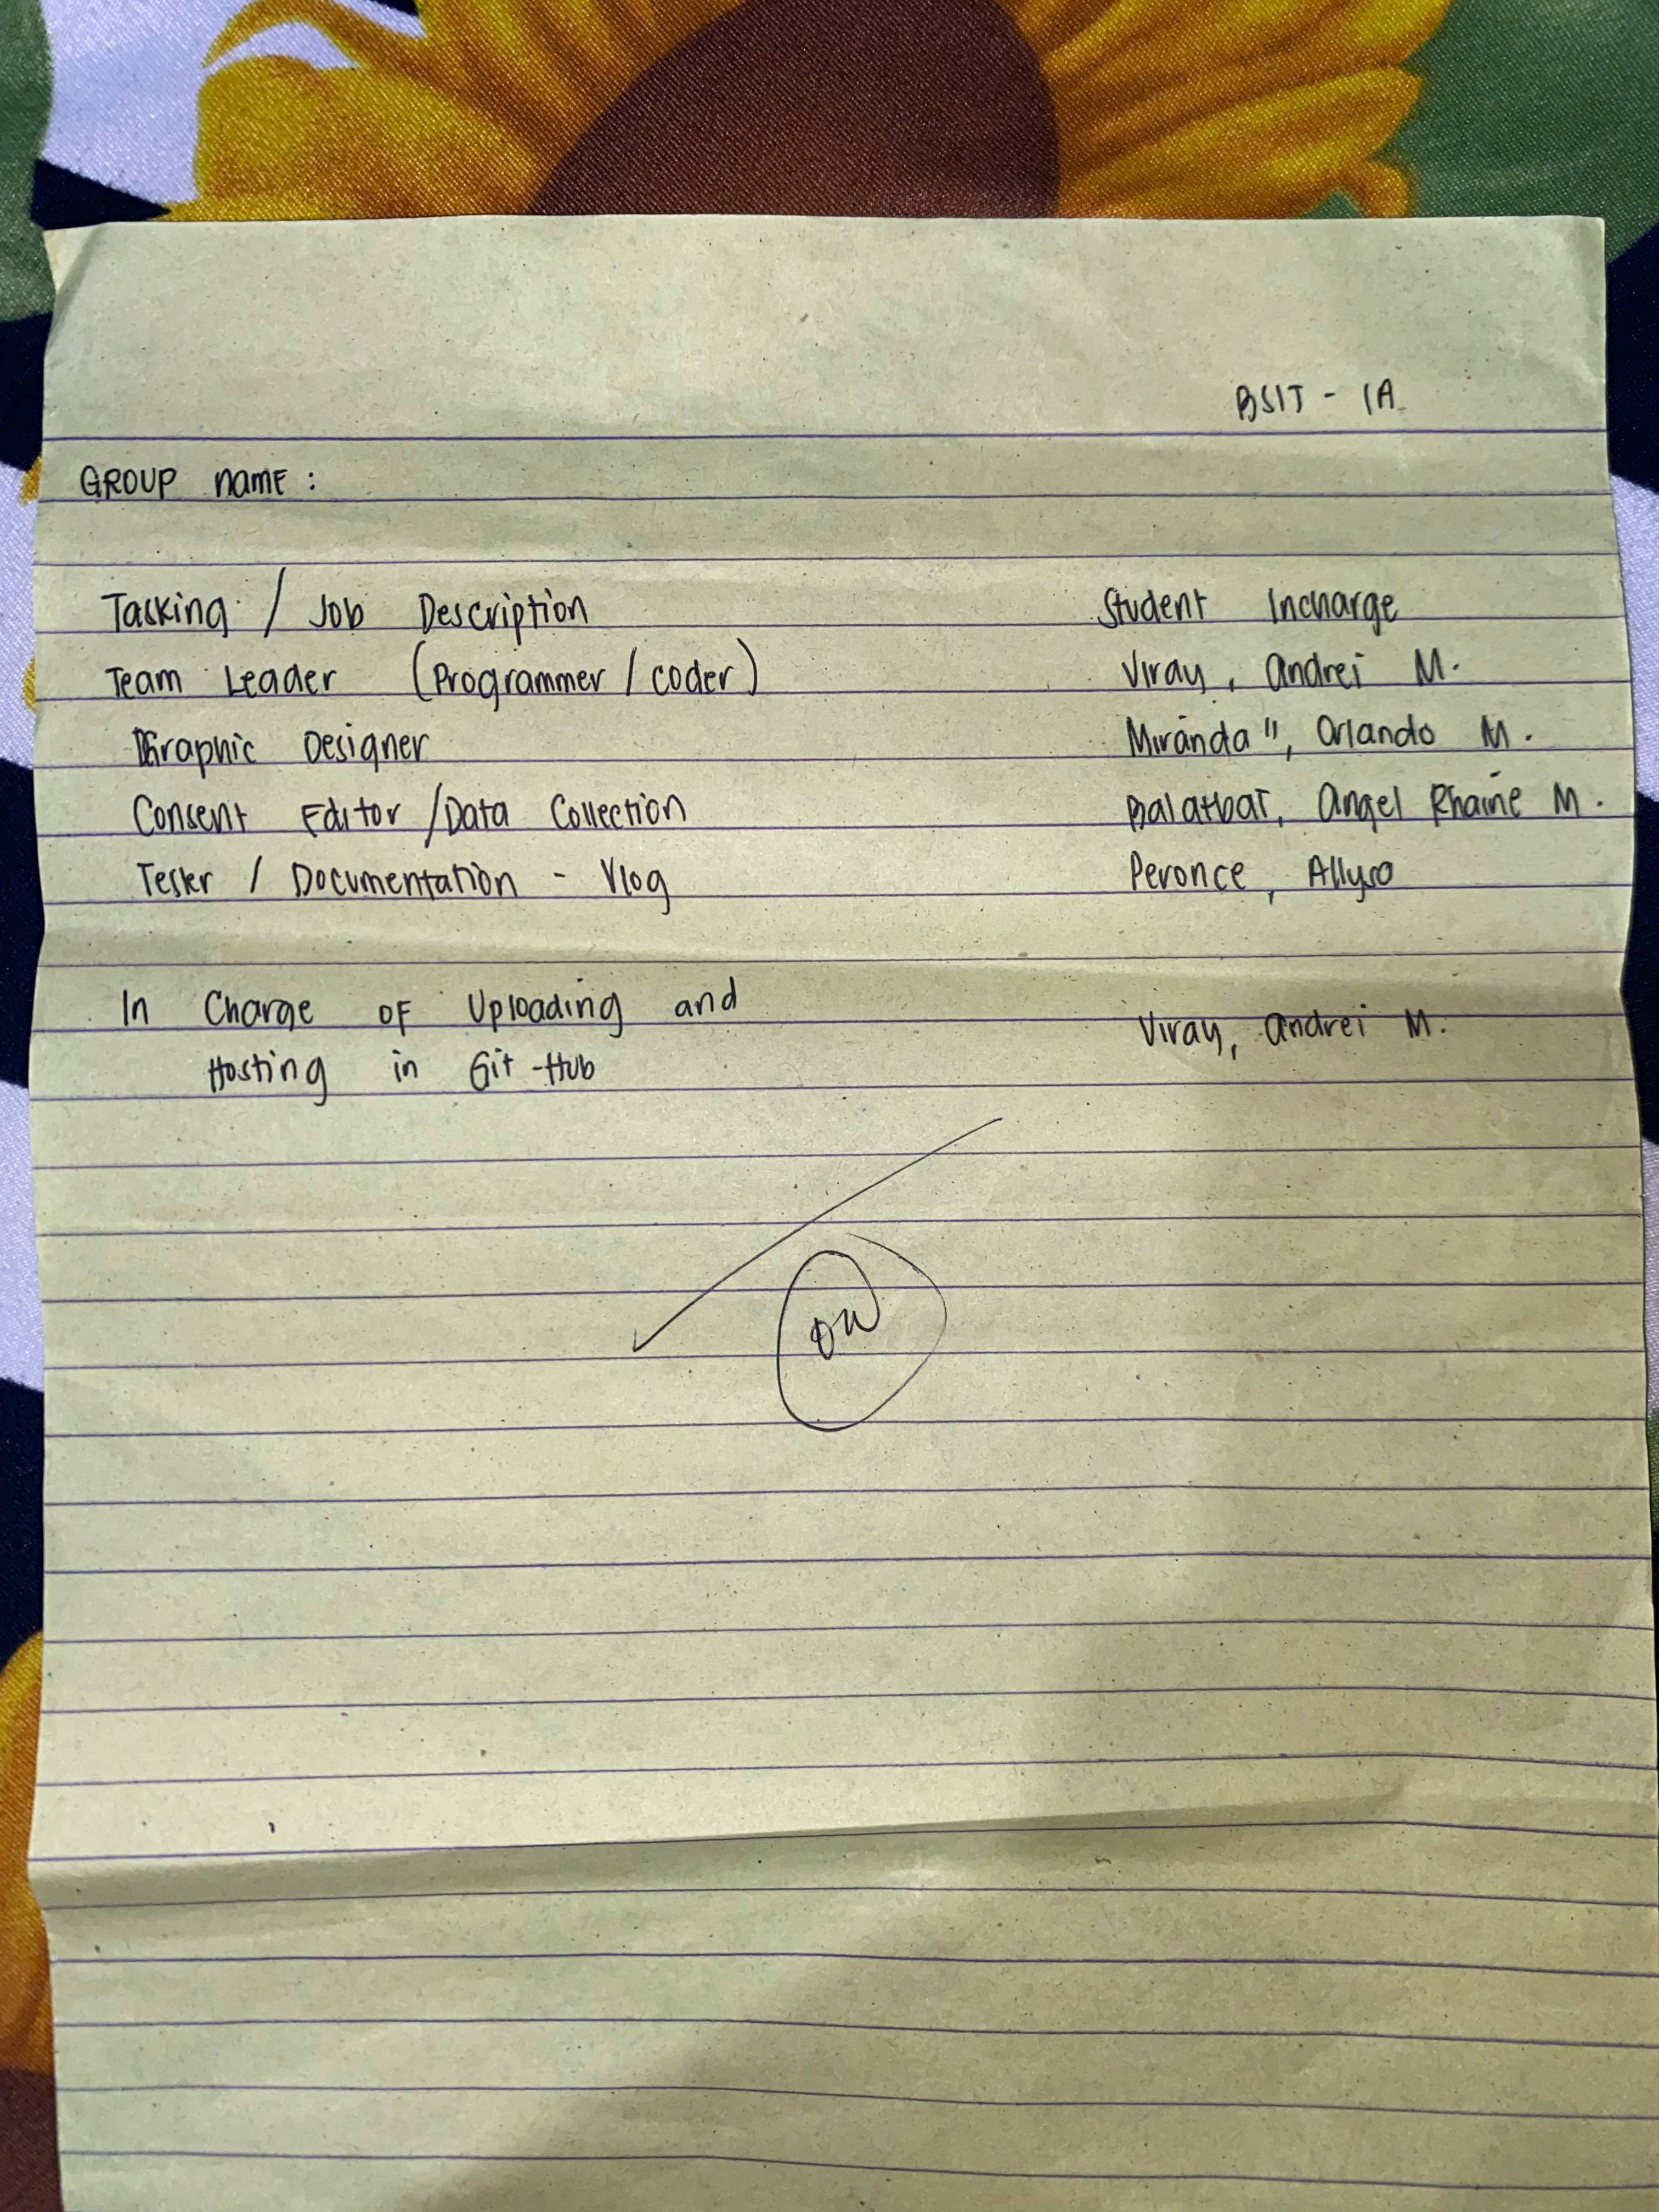 BSIT - 1A
GROUP NAME :
Tasking / Job Description Student Incharge
Team Leader (Programmer / coder) Viray, Andrei M.
Graphic Designer Miranda II, Orlando M.
Consent Editor / Data Collection Balatbat, Angel Rhaine M.
Tester / Documentation - Vlog Peronce, Allysa
In Charge of Uploading and Viray, Andrei M.
Hosting in Git-Hub